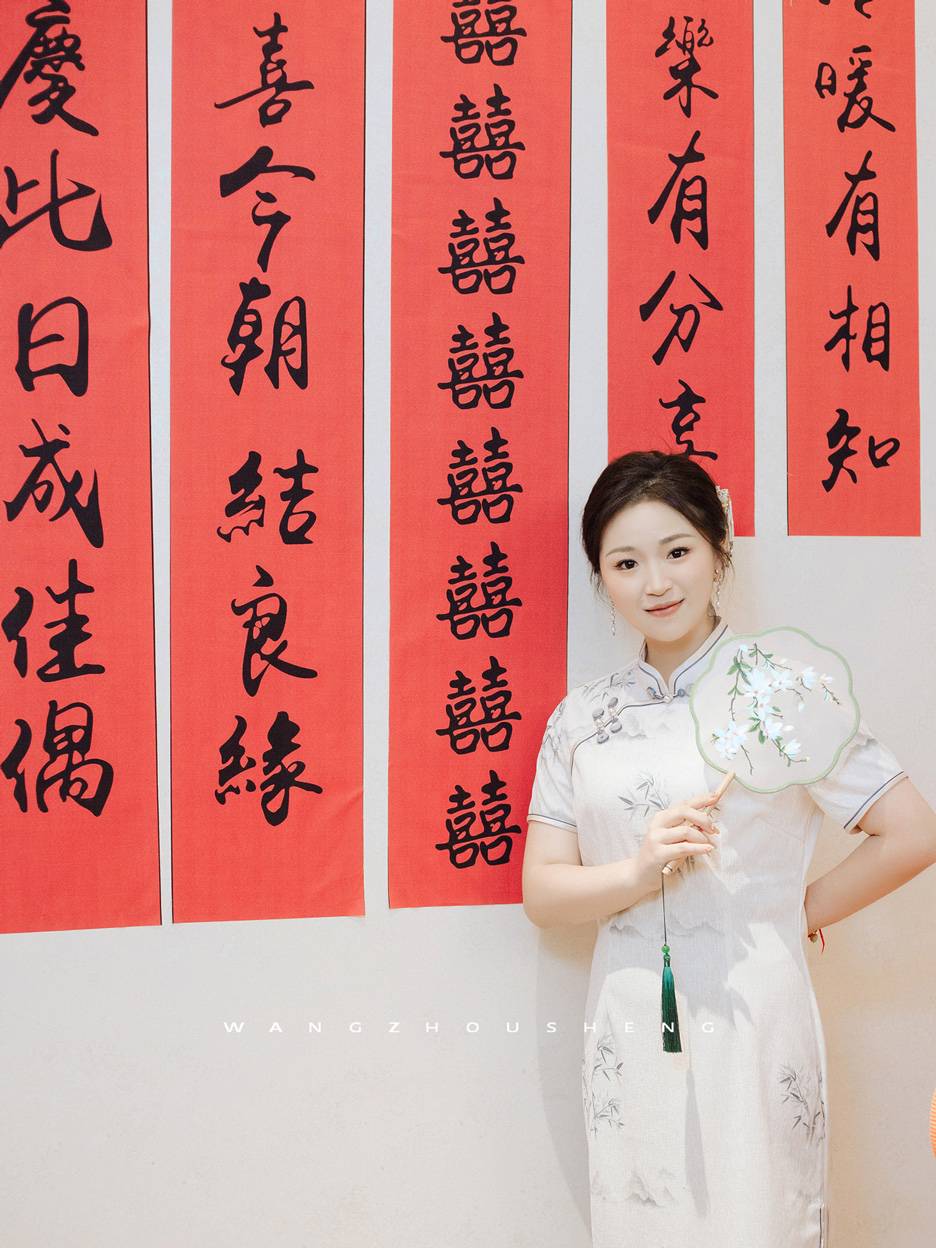 暖有相知
樂有分享
囍囍囍囍囍囍囍囍
喜今朝結良緣
慶此日成佳偶
WANGZHOUSHENG